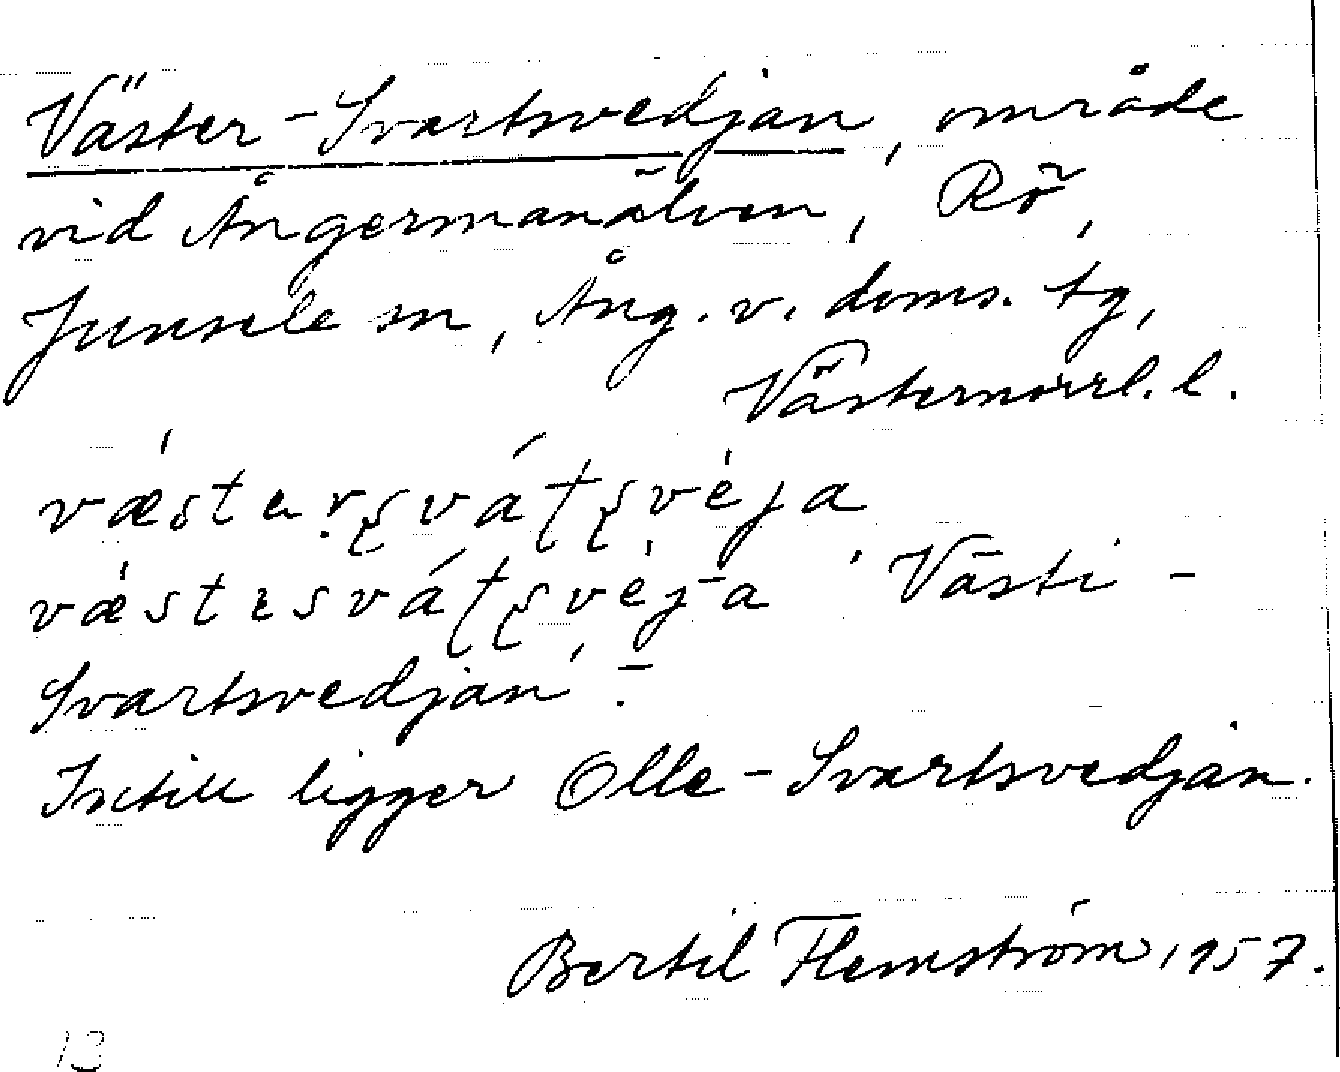 Väster-Svartsvedjan, område
vid Ångermanälven, Rö,
Junsele sn, Ång. v. doms. tg,
Västernorrl. l.
væ̀sterʂváʈʂvèja
væ̀stɪsváʈʂvèj-a 'Västi-
Svartsvedjan'. –
Intill ligger Olle-Svartsvedjan.
Bertil Flemström 1957.
13